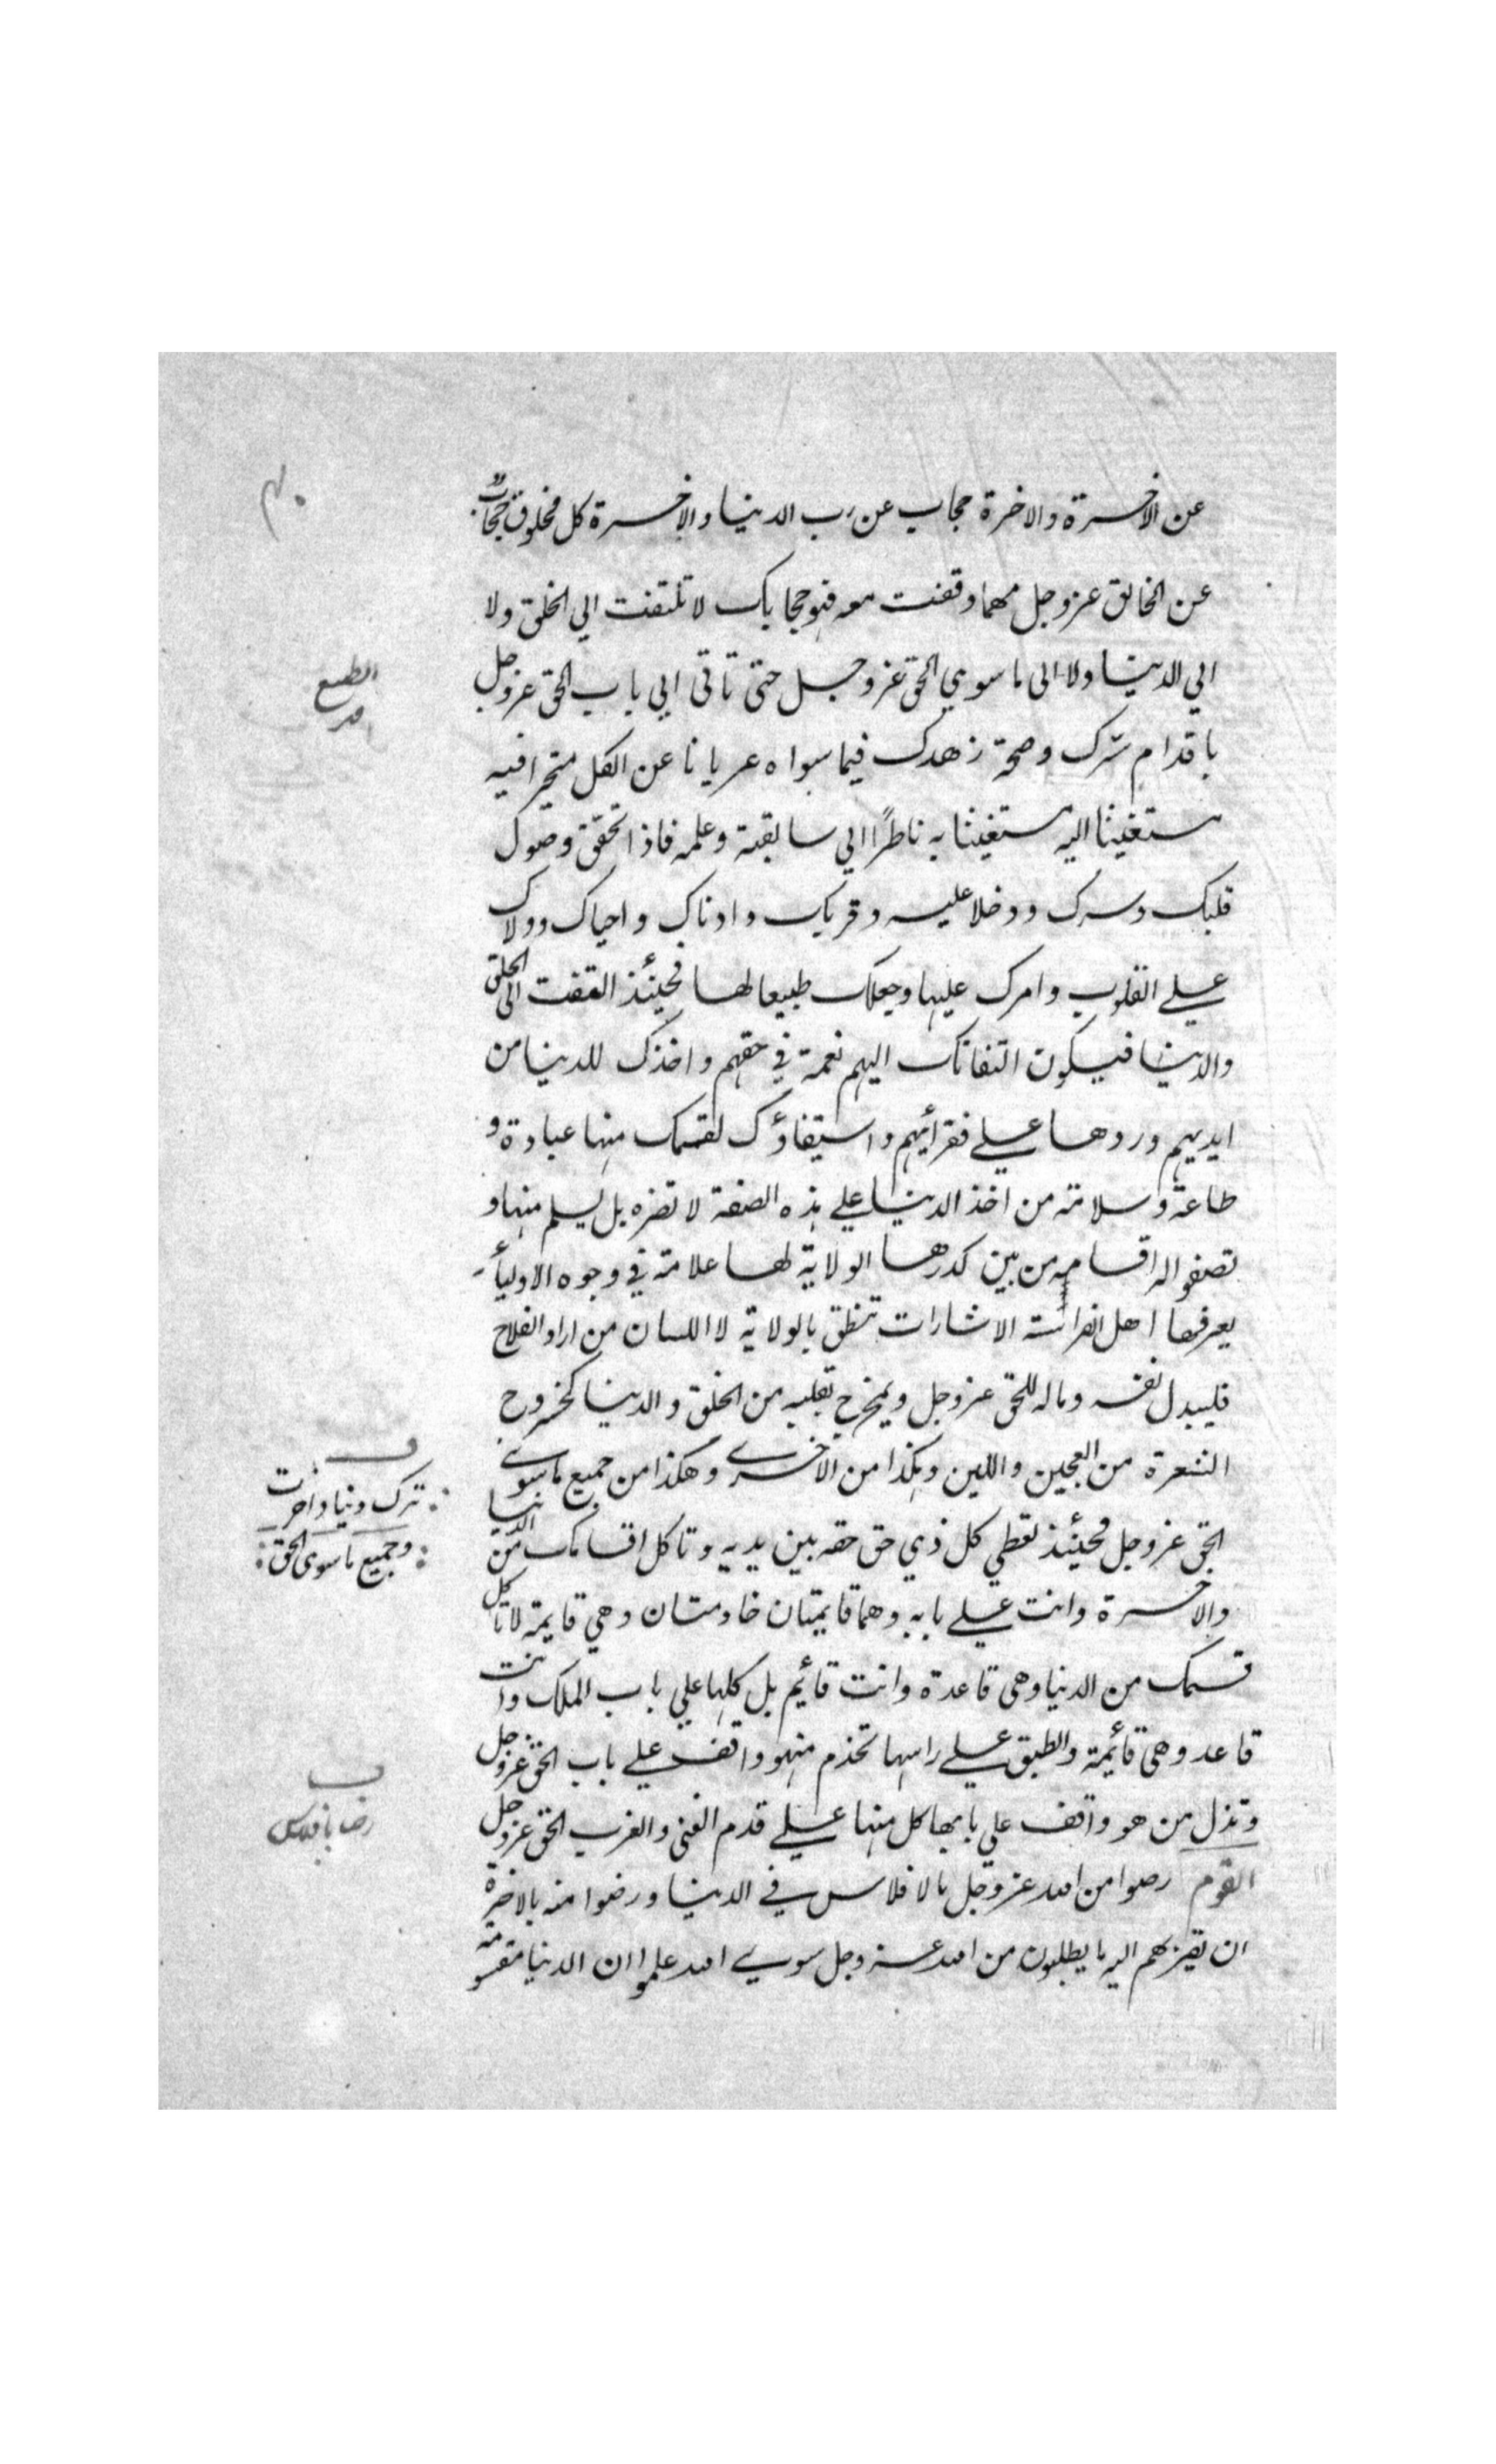 عن الاخرة والاخرة حجاب عن رب الدنيا والاخرة كل مخلوق حجاب
عن الخالق عزوجل مهما وقفت معه فهو حجابك لا تلتفت الي الخلق ولا
الي الدنيا ولا الى ما سوي الحق عزوجل حتى تاتى الي باب الحق عزوجل
باقدام سرك وصحة زهدك فيما سواه عريانا عن الكل متحيرا فيه
مستغيثا اليه مستغيثا به ناظرًا الي سابقته وعلمه فاذا تحقق وصول
قلبك وسرك ودخلا عليه وقربك وادناك واحياك وولاك
علے القلوب وامرك عليها وجعلك طبيعا لها فحينئذ التفت الى الخلق
والدنيا فيكون التفاتك اليهم نعمة في حقهم واخذك للدنيا من
ايديهم وردها علے فقرائهم واستيفاؤك لقسمك منها عبادة و
طاعة وسلامة من اخذ الدنيا علي هذه الصفة لا تضره بل يسلم منها و
تصفو له اقسامه من بين كدرها الولاية لها علامة في وجوه الاولياء
يعرفها اهل الفراسة الاشارات تنطق بالولاية لا اللسان من اراد الفلاح
فليبدل نفسه وماله للحق عزوجل ويخرج بقلبه من الخلق والدنيا كخروج
الشعرة من العجين واللبن وهكذا من الاخرے وهكذا من جميع ما سوے
الحق عزوجل فحينئذ تعطي كل ذي حق حقه بين يديه وتاكل اقسامك من الدنيا
والاخرة وانت علے بابه وهما قايمتان خادمتان وهي قايمة لا تاكل
قسمك من الدنيا وهى قاعدة وانت قائيم بل كلها علي باب الملك وانت
قاعد وهى قائيمة والطبق علے راسها تخدم منهو واقف علے باب الحق عزوجل
وتذل من هو واقف علي بابها كل منها علے قدم الغنى والعز الحق عزوجل
القوم رضوا من الله عزوجل بالافلاس في الدنيا ورضوا منه بالاخرة
ان تقربهم اليه ما يطلبون من الله عزوجل سوے الله علموا ان الدنيا مقسومة
ف
ترك دنيا واخرت
وجميع ما سوى الحق
ف
رضا بافلاس